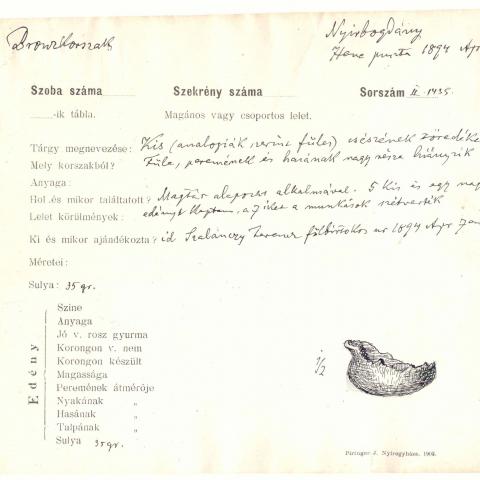 Bronzkorszak
Nyirbogdány
Hene puszta 1894 Apr
Szoba száma Szekrény száma Sorszám II. 1435.
-ik tábla. Magános vagy csoportos lelet.
Tárgy megnevezése: Kis (analogiák szerint füles) csészének töredéke
Mely korszakból? Füle, peremének és hasának nagy része hiányzik
Anyaga:
Hol és mikor találtatott? Magtár alapozás alkalmával. 5 kis és egy nagy
Lelet körülmények: edényt kaptam, a 7 iket a munkások szétverték
Ki és mikor ajándékozta? id Szalánczy Ferencz földbirtokos ur 1894 Apr
Méretei:
Sulya: 35 gr.
Edény
Szine
Anyaga
Jó v. rosz gyurma
Korongon v. nem
Korongon készült
Magassága
Peremének átmérője
Nyakának „
Hasának „
Talpának „
Sulya 35 gr.
1/2
Piringer J. Nyiregyháza. 1902.